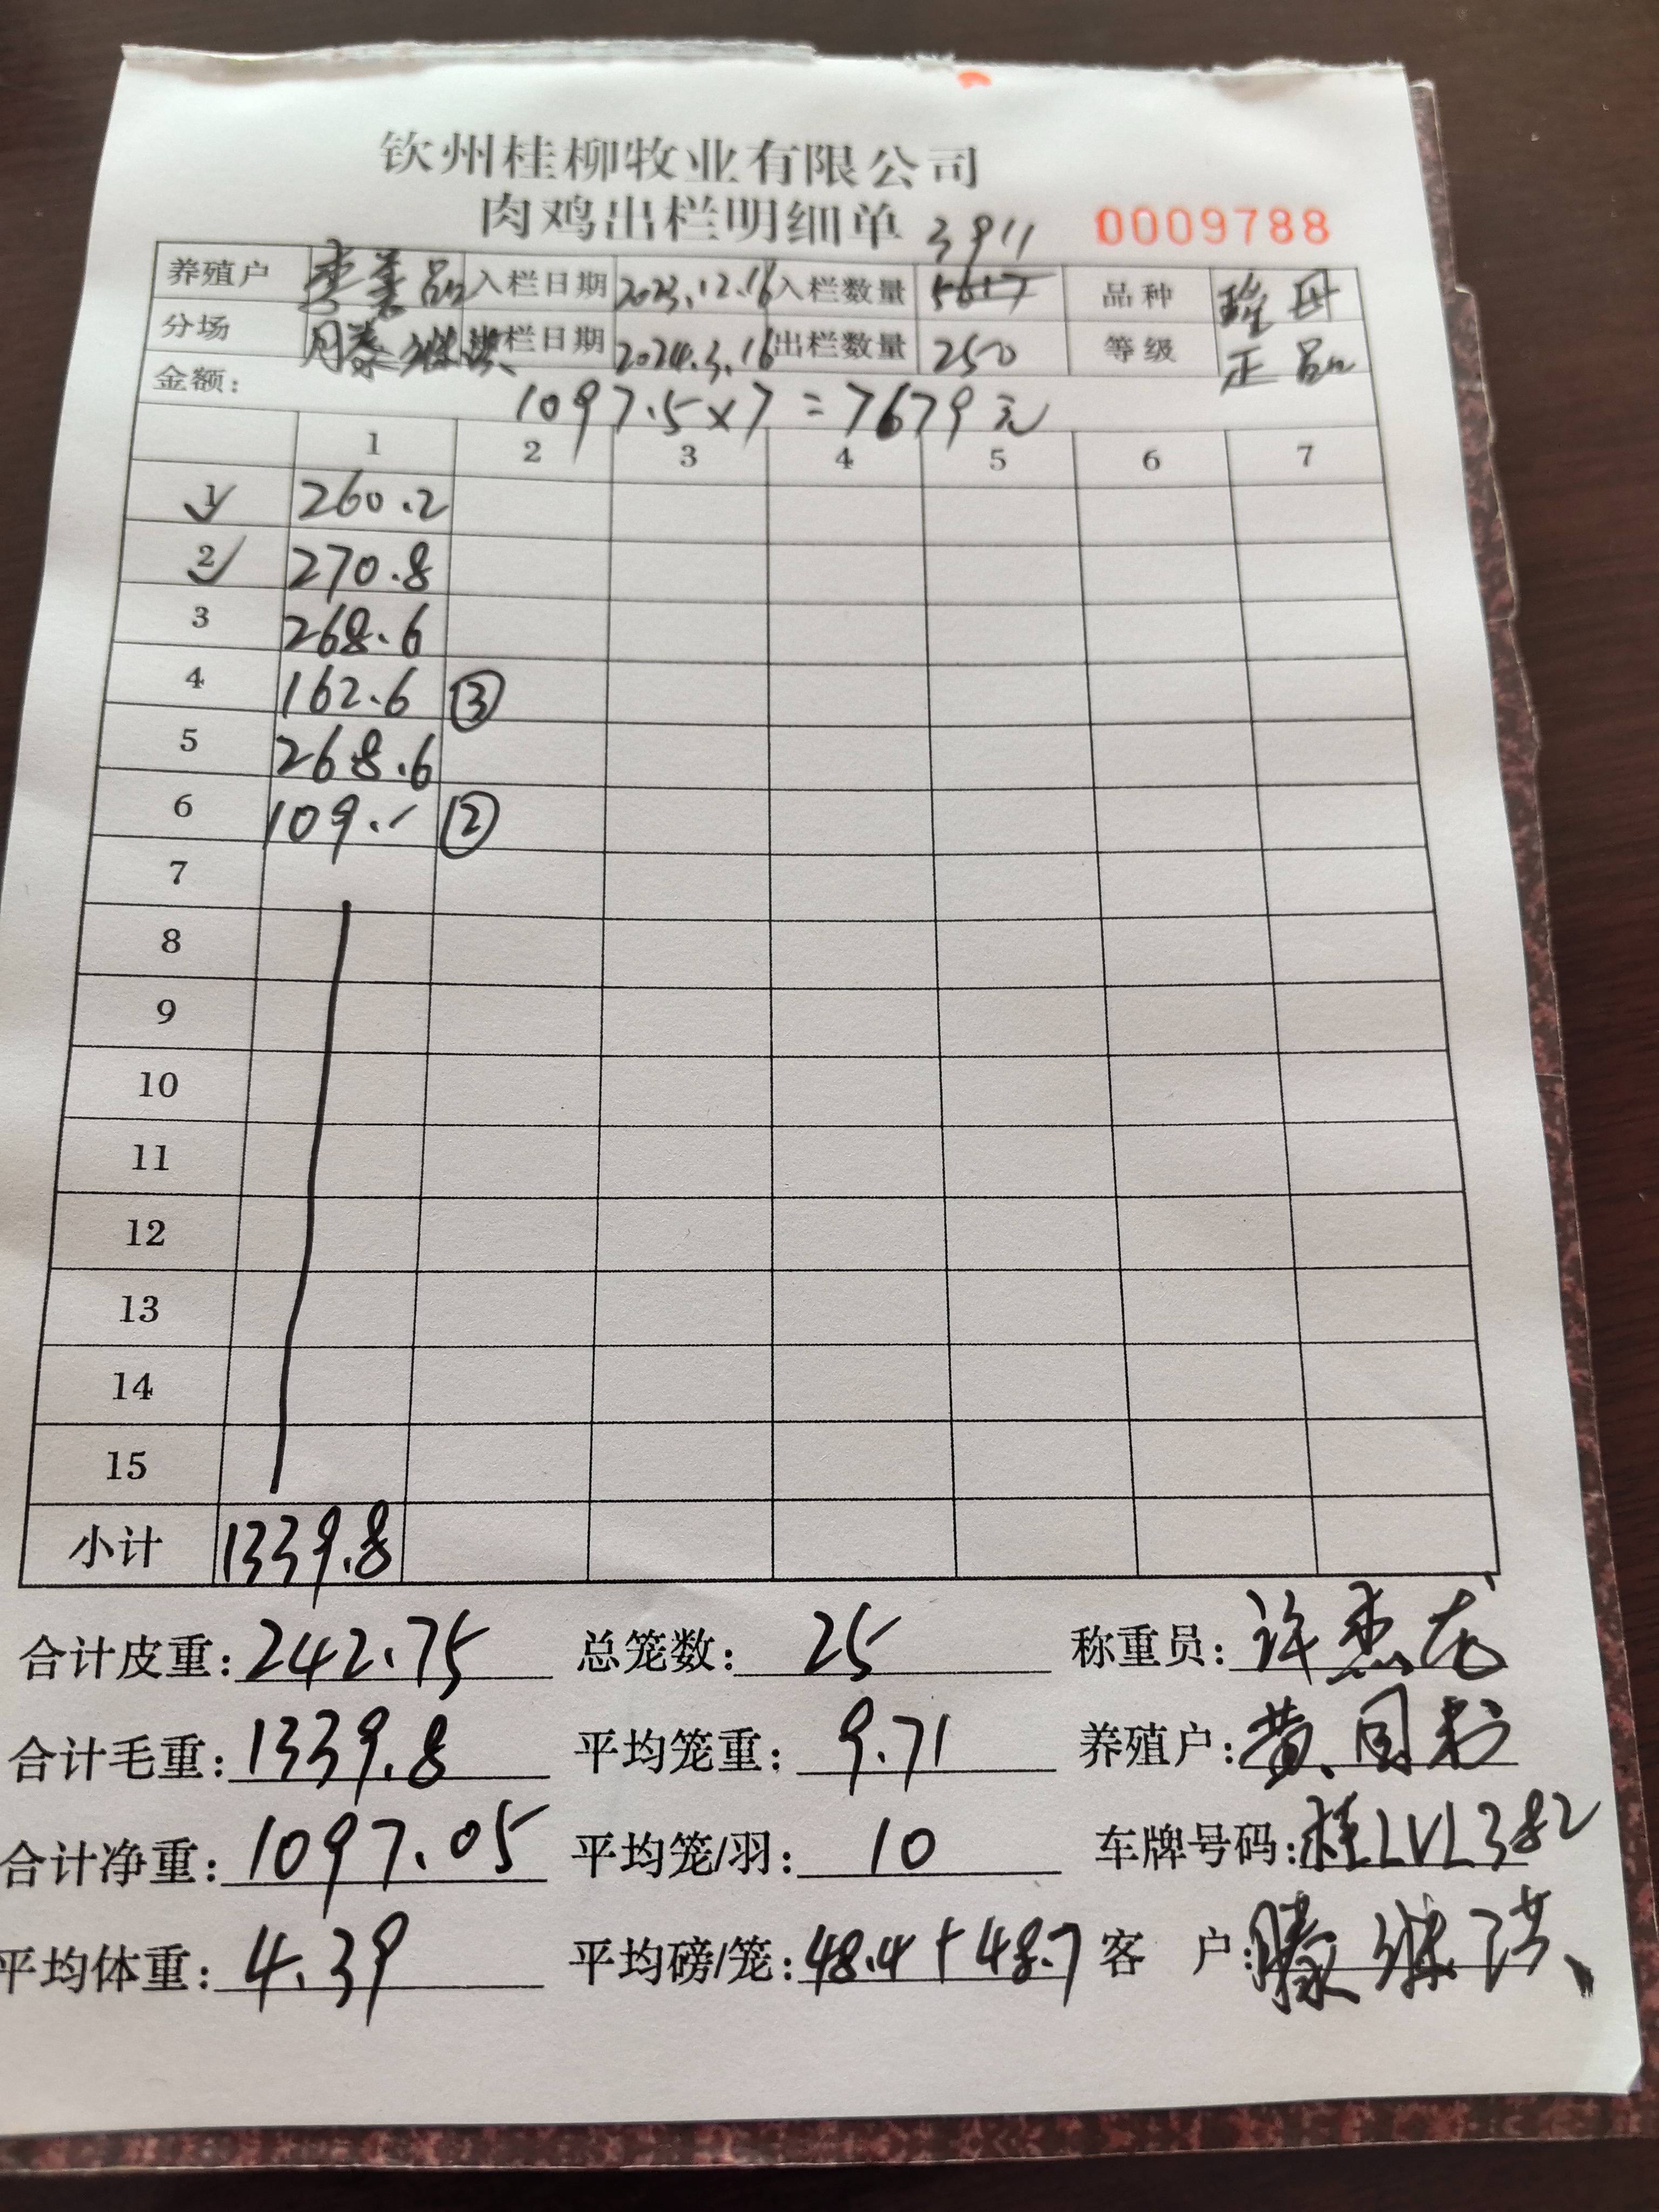 钦州桂柳牧业有限公司
肉鸡出栏明细单 3911 0009788
养殖户 李美品 入栏日期 2023.12.16 入栏数量 5617 品种 母
分场 滕继洪 栏日期 2024.3.16 出栏数量 250 等级 正品
金额: 1097.5×7=7679元
1 2 3 4 5 6 7
1 260.2
2 270.8
3 268.6
4 162.6 ③
5 268.6
6 109.- ②
7
8
9
10
11
12
13
14
15
小计 1339.8
合计皮重: 242.75 总笼数: 25 称重员: 许杰龙
合计毛重: 1339.8 平均笼重: 9.71 养殖户: 黄
合计净重: 1097.05 平均笼/羽: 10 车牌号码: 桂LVL382
平均体重: 4.39 平均磅/笼: 48.4+48.7 客户: 滕继洪